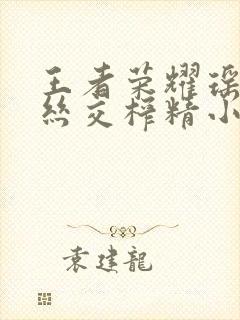 王者荣耀瑶
丝交榨精小
袁建龍